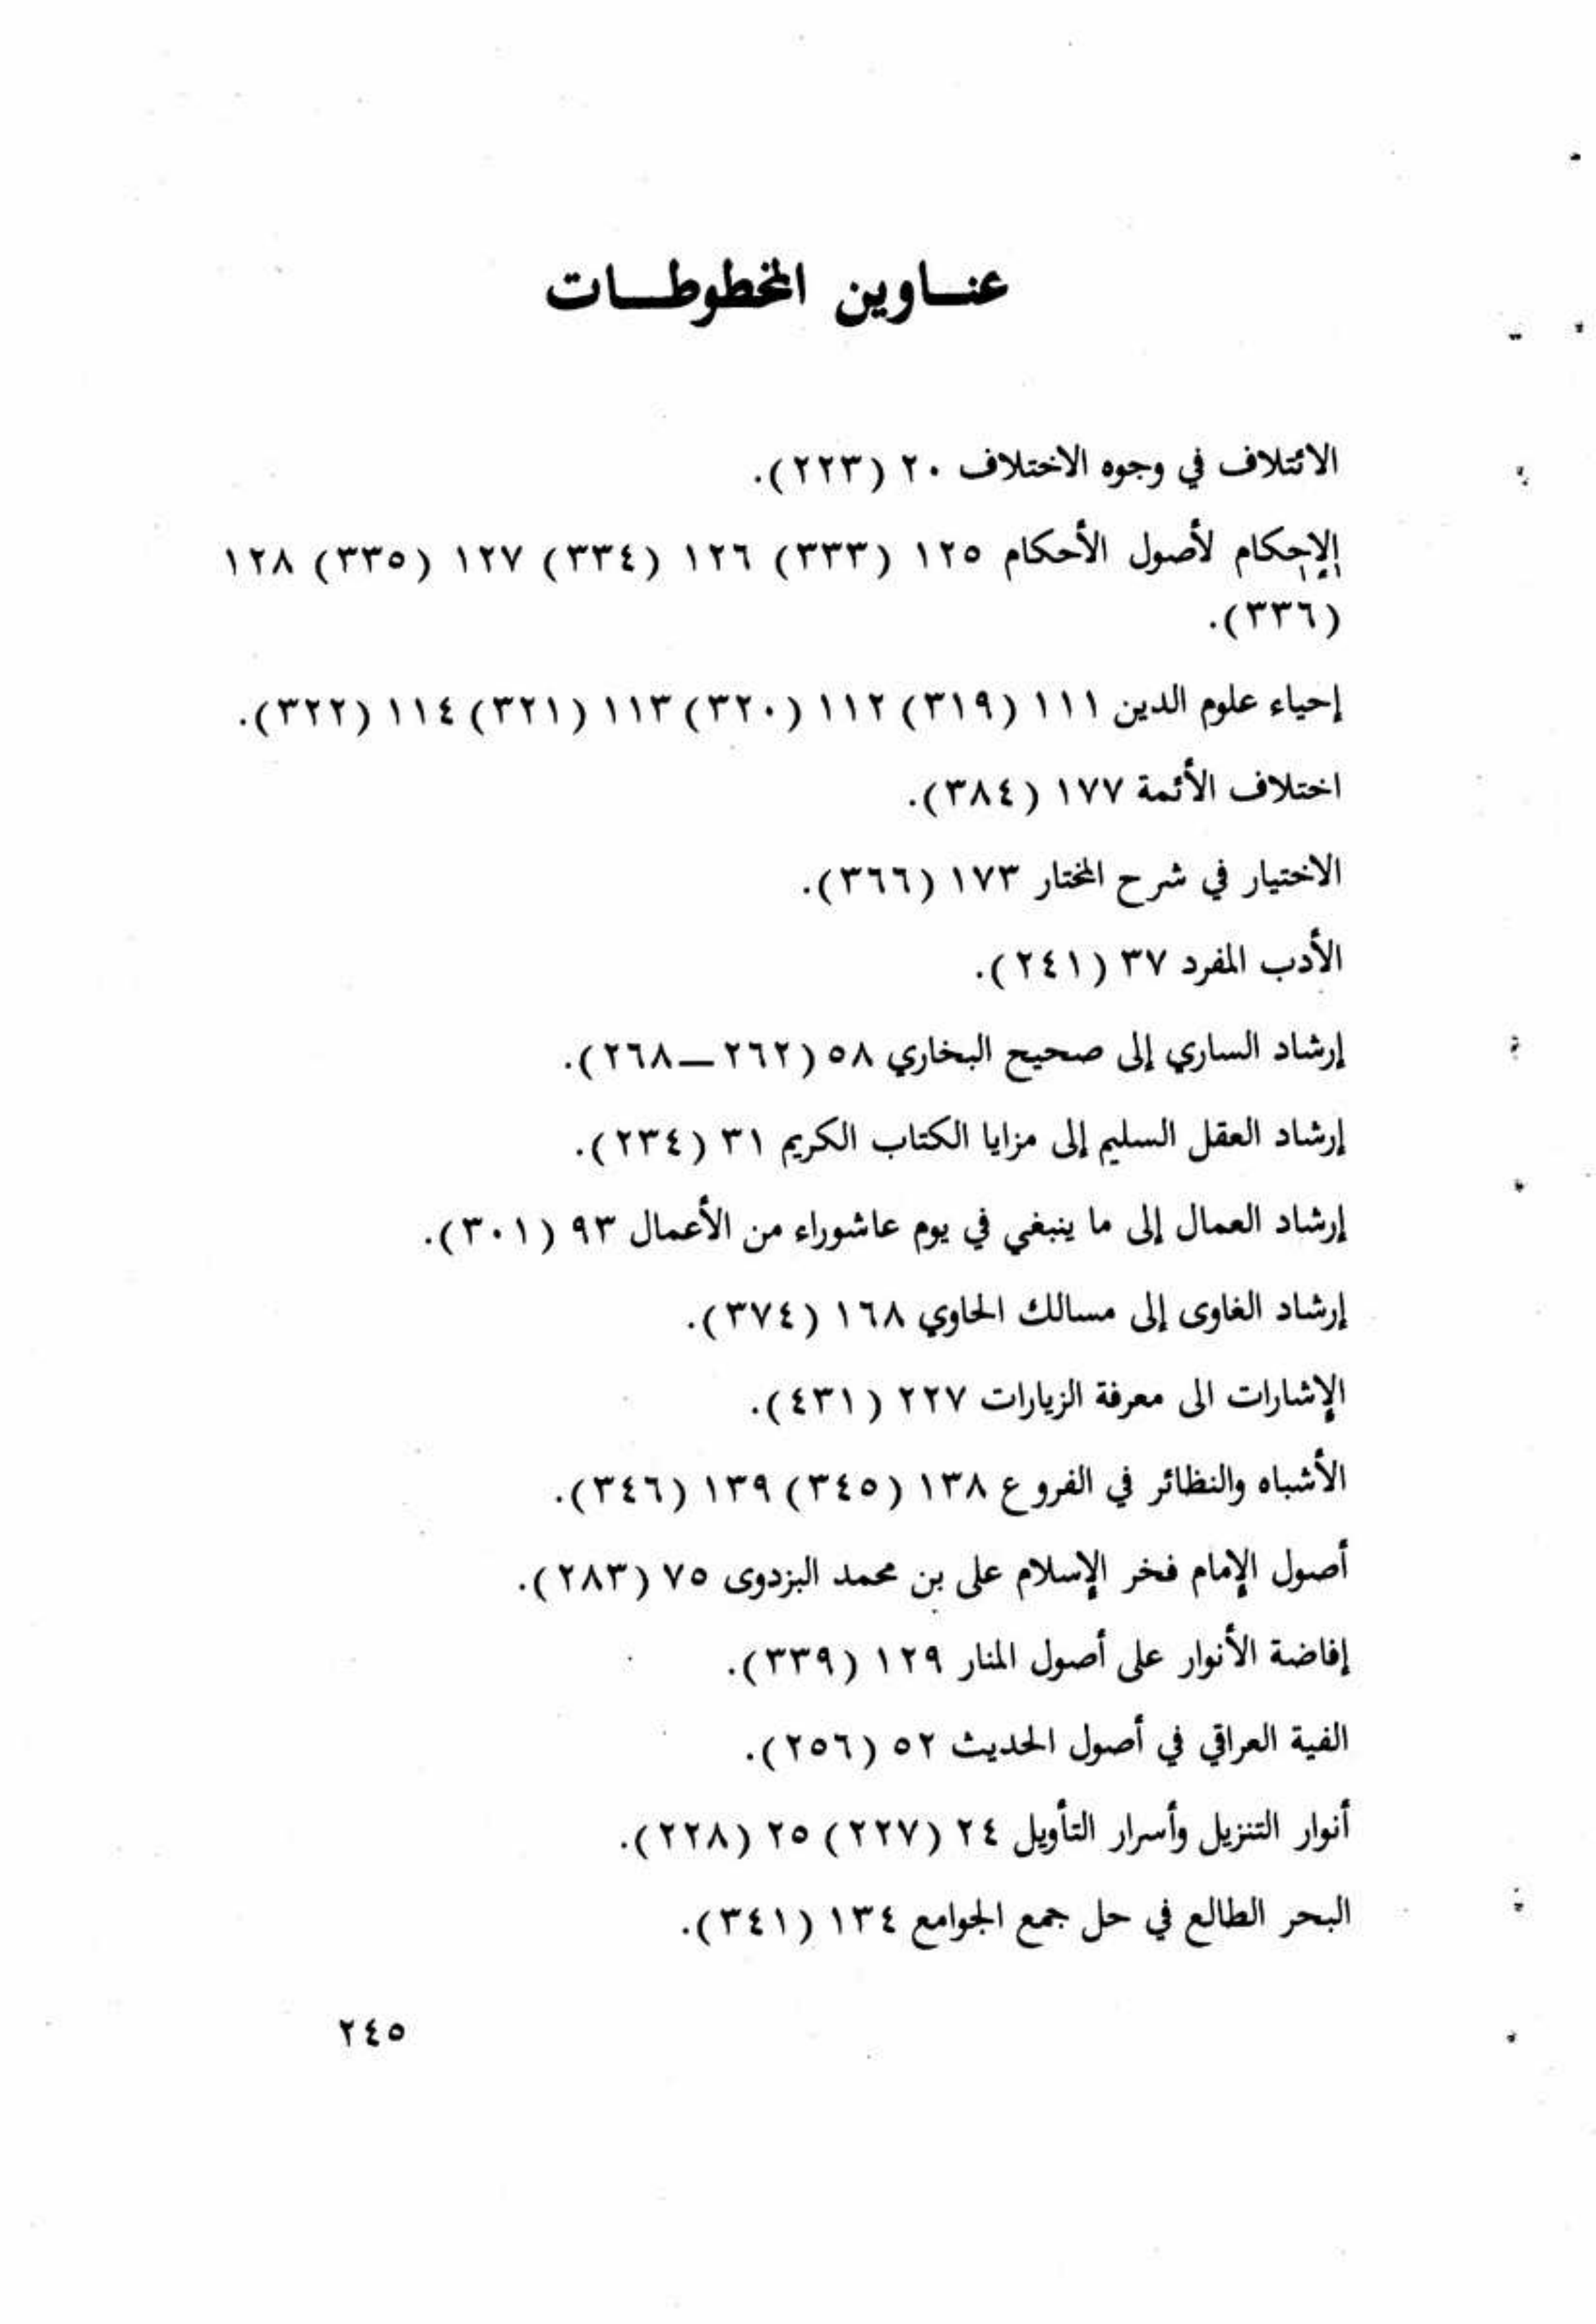 عنـــاوين المخطوطـــات
الائتلاف في وجوه الاختلاف ٢٠ (٢٢٣).
الإحكام لأصول الأحكام ١٢٥ (٣٣٣) ١٢٦ (٣٣٤) ١٢٧ (٣٣٥) ١٢٨
(٣٣٦).
إحياء علوم الدين ١١١ (٣١٩) ١١٢ (٣٢٠) ١١٣ (٣٢١) ١١٤ (٣٢٢).
اختلاف الأئمة ١٧٧ (٣٨٤).
الاختيار في شرح المختار ١٧٣ (٣٦٦).
الأدب المفرد ٣٧ (٢٤١).
إرشاد الساري إلى صحيح البخاري ٥٨ (٢٦٢ــ٢٦٨).
إرشاد العقل السليم إلى مزايا الكتاب الكريم ٣١ (٢٣٤).
إرشاد العمال إلى ما ينبغي في يوم عاشوراء من الأعمال ٩٣ (٣٠١).
إرشاد الغاوى إلى مسالك الحاوي ١٦٨ (٣٧٤).
الإشارات الى معرفة الزيارات ٢٢٧ (٤٣١).
الأشباه والنظائر في الفروع ١٣٨ (٣٤٥) ١٣٩ (٣٤٦).
أصول الإمام فخر الإسلام على بن محمد البزدوى ٧٥ (٢٨٣).
إفاضة الأنوار على أصول المنار ١٢٩ (٣٣٩).
الفية العراقي في أصول الحديث ٥٢ (٢٥٦).
أنوار التنزيل وأسرار التأويل ٢٤ (٢٢٧) ٢٥ (٢٢٨).
البحر الطالع في حل جمع الجوامع ١٣٤ (٣٤١).
٢٤٥